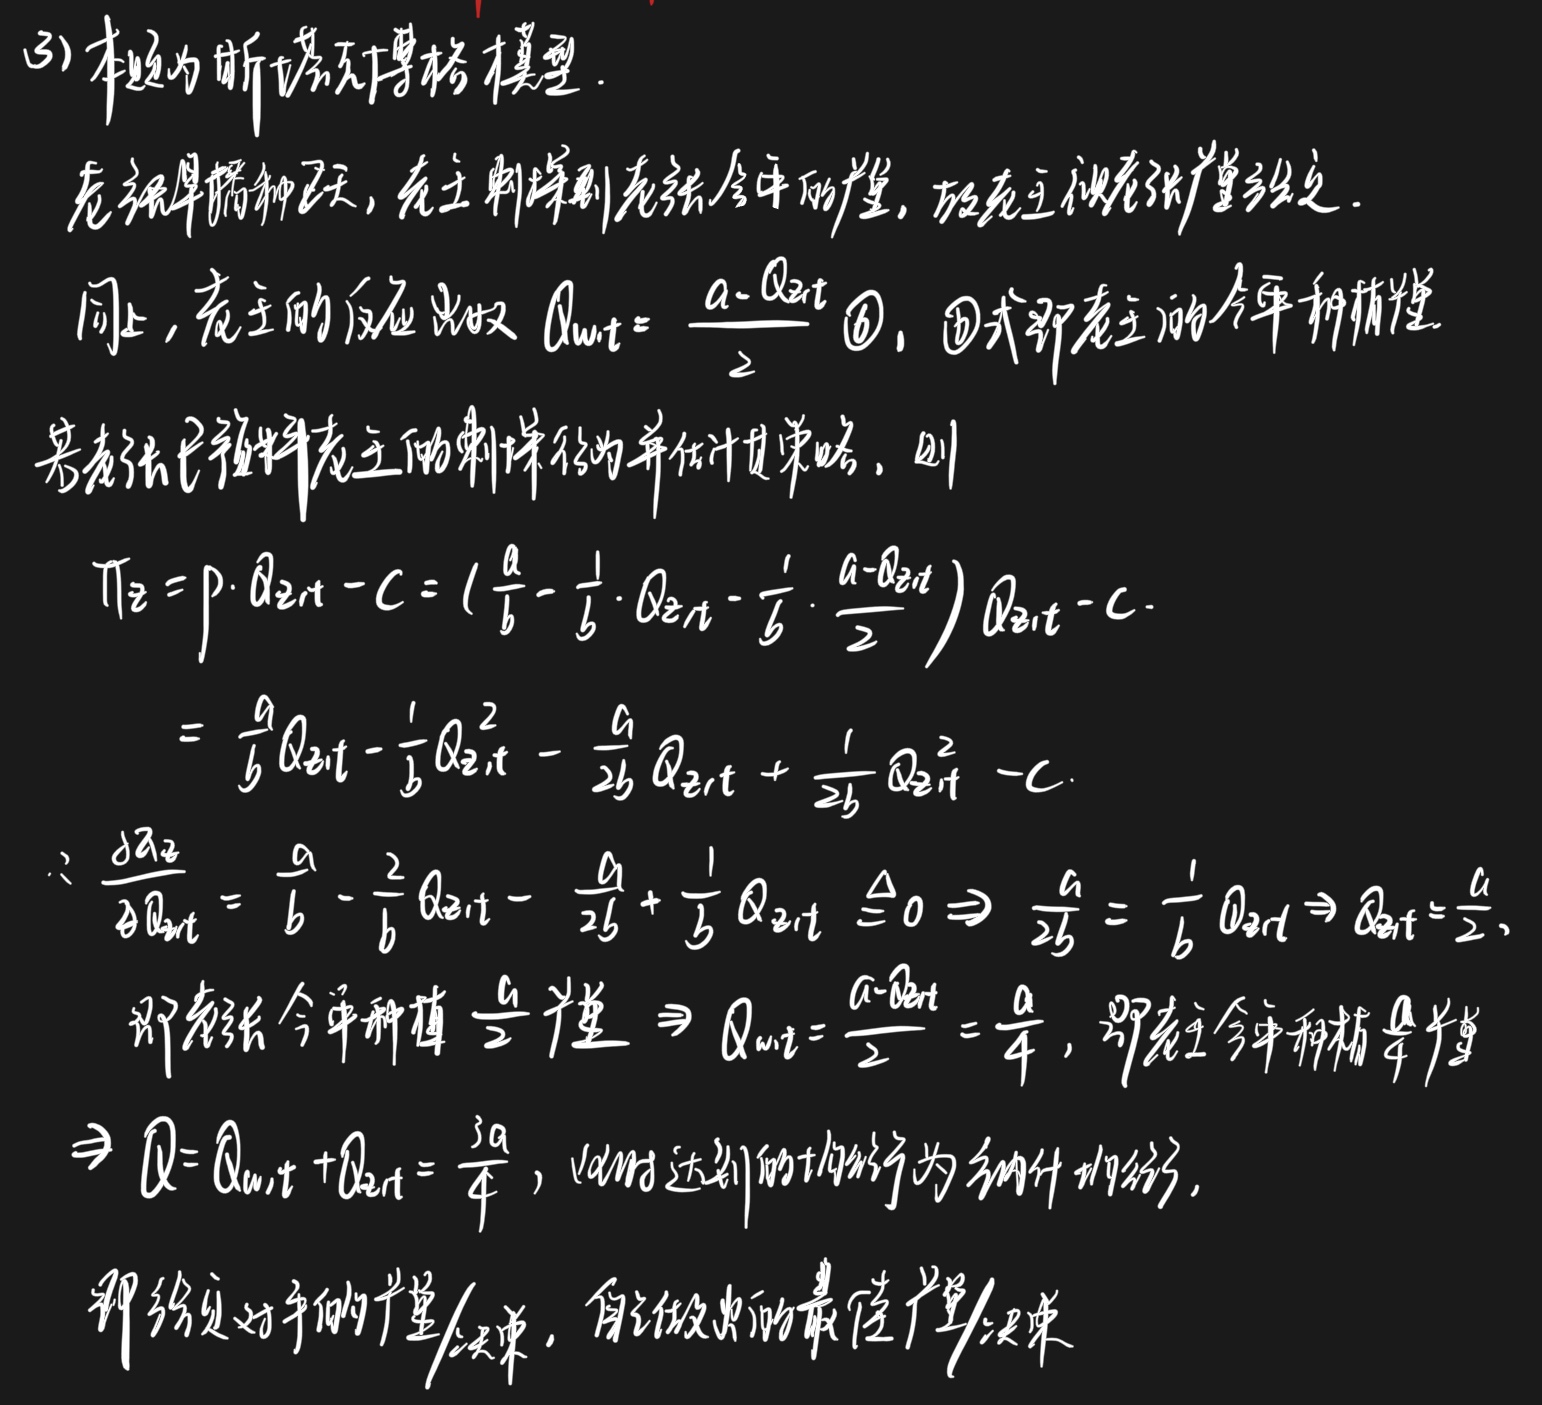 (3) 本题为斯塔克博格模型.
老张早播种两天, 老王刺探到老张今年的产量, 故老王视老张产量给定.
同上, 老王的反应函数 Q_{w,t} = \frac{a - Q_{z,t}}{2} ⑥, ⑥式即老王的今年种植量.
若老张已预料老王的刺探行为并估计其策略, 则
π_z = p·Q_{z,t} - C = (\frac{a}{b} - \frac{1}{b}·Q_{z,t} - \frac{1}{b}·\frac{a-Q_{z,t}}{2}) Q_{z,t} - C.
= \frac{a}{b}Q_{z,t} - \frac{1}{b}Q_{z,t}^2 - \frac{a}{2b}Q_{z,t} + \frac{1}{2b}Q_{z,t}^2 - C.
∴ \frac{∂π_z}{∂Q_{z,t}} = \frac{a}{b} - \frac{2}{b}Q_{z,t} - \frac{a}{2b} + \frac{1}{b}Q_{z,t} ≜ 0 ⇒ \frac{a}{2b} = \frac{1}{b}Q_{z,t} ⇒ Q_{z,t} = \frac{a}{2},
即老张今年种植 \frac{a}{2} 产量 ⇒ Q_{w,t} = \frac{a-Q_{z,t}}{2} = \frac{a}{4}, 即老王今年种植 \frac{a}{4} 产量
⇒ Q = Q_{w,t} + Q_{z,t} = \frac{3a}{4}, 此时达到的均衡为纳什均衡,
即给定对手的产量/决策, 自己做出的最佳产量/决策